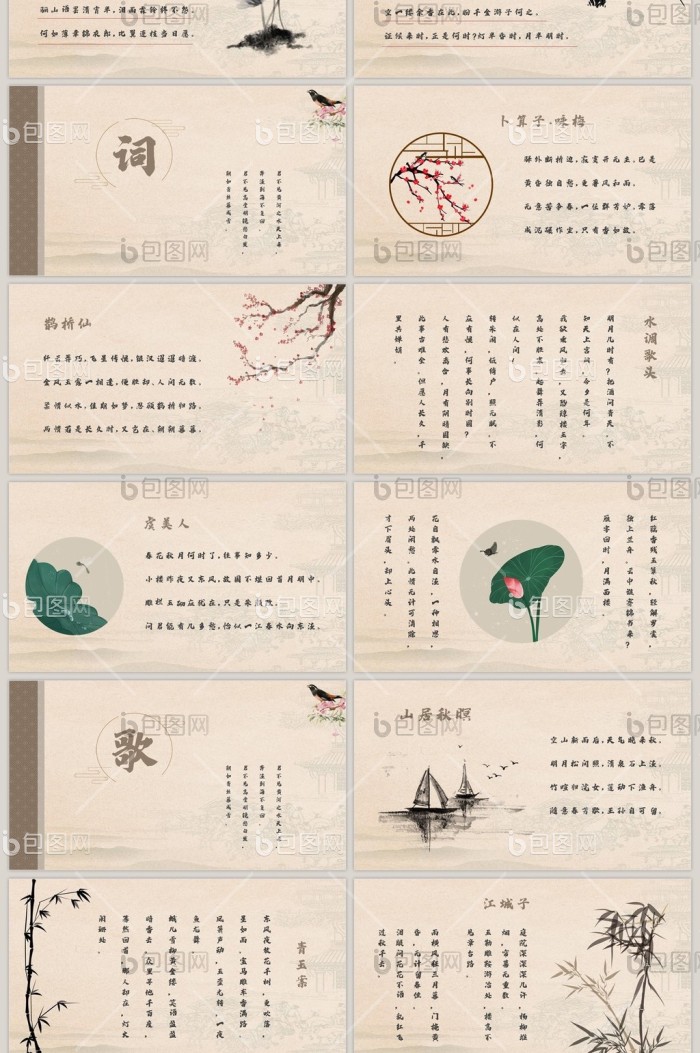 骊山语罢清宵半,泪雨霖铃终不怨。
何如薄幸锦衣郎,比翼连枝当日愿。
空一缕余香在此,盼千金游子何之。
证候来时,正是何时?灯半昏时,月半明时。
词
君不见黄河之水天上来,
奔流到海不复回。
君不见高堂明镜悲白发,
朝如青丝暮成雪。
卜算子·咏梅
驿外断桥边,寂寞开无主。已是
黄昏独自愁,更著风和雨。
无意苦争春,一任群芳妒。零落
成泥碾作尘,只有香如故。
鹊桥仙
纤云弄巧,飞星传恨,银汉迢迢暗渡。
金风玉露一相逢,便胜却、人间无数。
柔情似水,佳期如梦,忍顾鹊桥归路。
两情若是长久时,又岂在、朝朝暮暮。
水调歌头
明月几时有?把酒问青天。不
知天上宫阙,今夕是何年。
我欲乘风归去,又恐琼楼玉宇,
高处不胜寒。起舞弄清影,何
似在人间。
转朱阁,低绮户,照无眠。不
应有恨,何事长向别时圆?
人有悲欢离合,月有阴晴圆缺,
此事古难全。但愿人长久,千
里共婵娟。
虞美人
春花秋月何时了,往事知多少。
小楼昨夜又东风,故国不堪回首月明中。
雕栏玉砌应犹在,只是朱颜改。
问君能有几多愁,恰似一江春水向东流。
红藕香残玉簟秋,轻解罗裳,
独上兰舟。云中谁寄锦书来?
雁字回时,月满西楼。
花自飘零水自流,一种相思,
两处闲愁。此情无计可消除,
才下眉头,却上心头。
歌
君不见黄河之水天上来,
奔流到海不复回。
君不见高堂明镜悲白发,
朝如青丝暮成雪。
山居秋暝
空山新雨后,天气晚来秋。
明月松间照,清泉石上流。
竹喧归浣女,莲动下渔舟。
随意春芳歇,王孙自可留。
青玉案
东风夜放花千树,更吹落,
星如雨。宝马雕车香满路。
凤箫声动,玉壶光转,一夜
鱼龙舞。
蛾儿雪柳黄金缕,笑语盈盈
暗香去。众里寻他千百度,
蓦然回首,那人却在,灯火
阑珊处。
江城子
庭院深深深几许,杨柳堆
烟,帘幕无重数。
玉勒雕鞍游冶处,楼高不
见章台路。
雨横风狂三月暮,门掩黄
昏,无计留春住。
泪眼问花花不语,乱红飞
过秋千去。
包图网